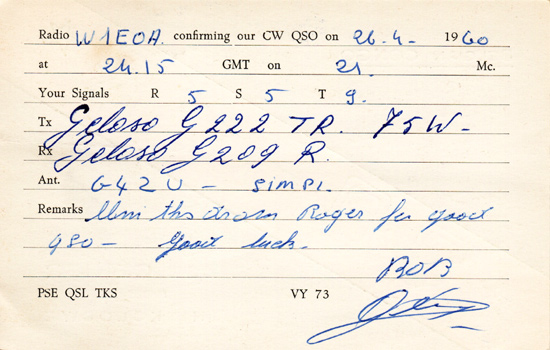 Radio W1EOA. confirming our CW QSO on 26.4. 1960
at 24.15 GMT on 21. Mc.
Your Signals R 5 S 5 T 9.
Tx Geloso G222 TR. 75W-
Rx Geloso G209 R.
Ant. G4ZU - simpl.
Remarks ths Roger for good
QSO - Good luck.
BOB
PSE QSL TKS VY 73